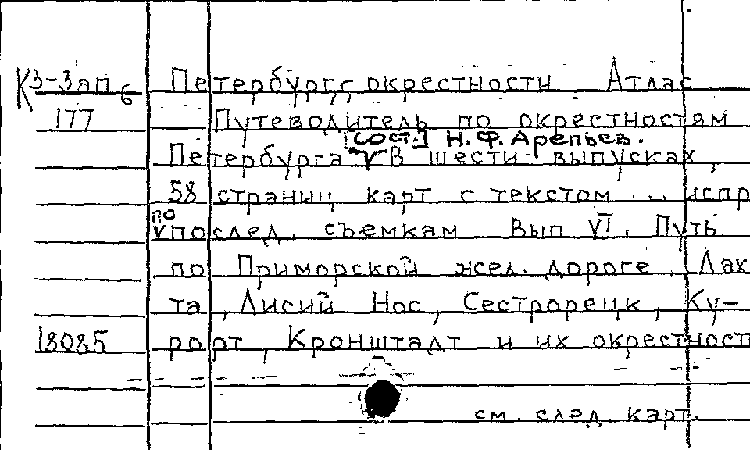 К3-Зап 6 Петербург, окрестности Атлас
177 Путеводитель по окрестностям
[Сост.] Н.Ф. Арепьев.
Петербурга V В шести выпусках,
58 страниц карт с текстом .. испр
по
V послед. съемкам Вып VI. Путь
по Приморской жел. дороге. Лах
та, Лисий Нос, Сестрорецк, Ку-
18085 рорт, Кронштадт и их окрестност
см. след. карт.